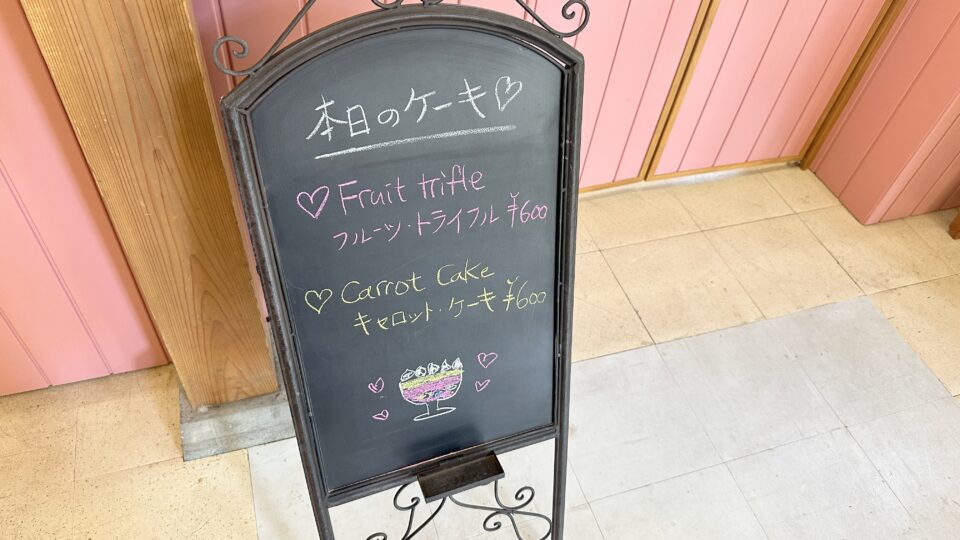 本日のケーキ♡
♡ Fruit trifle
フルーツ・トライフル ¥600
♡ Carrot Cake
キャロット・ケーキ ¥600